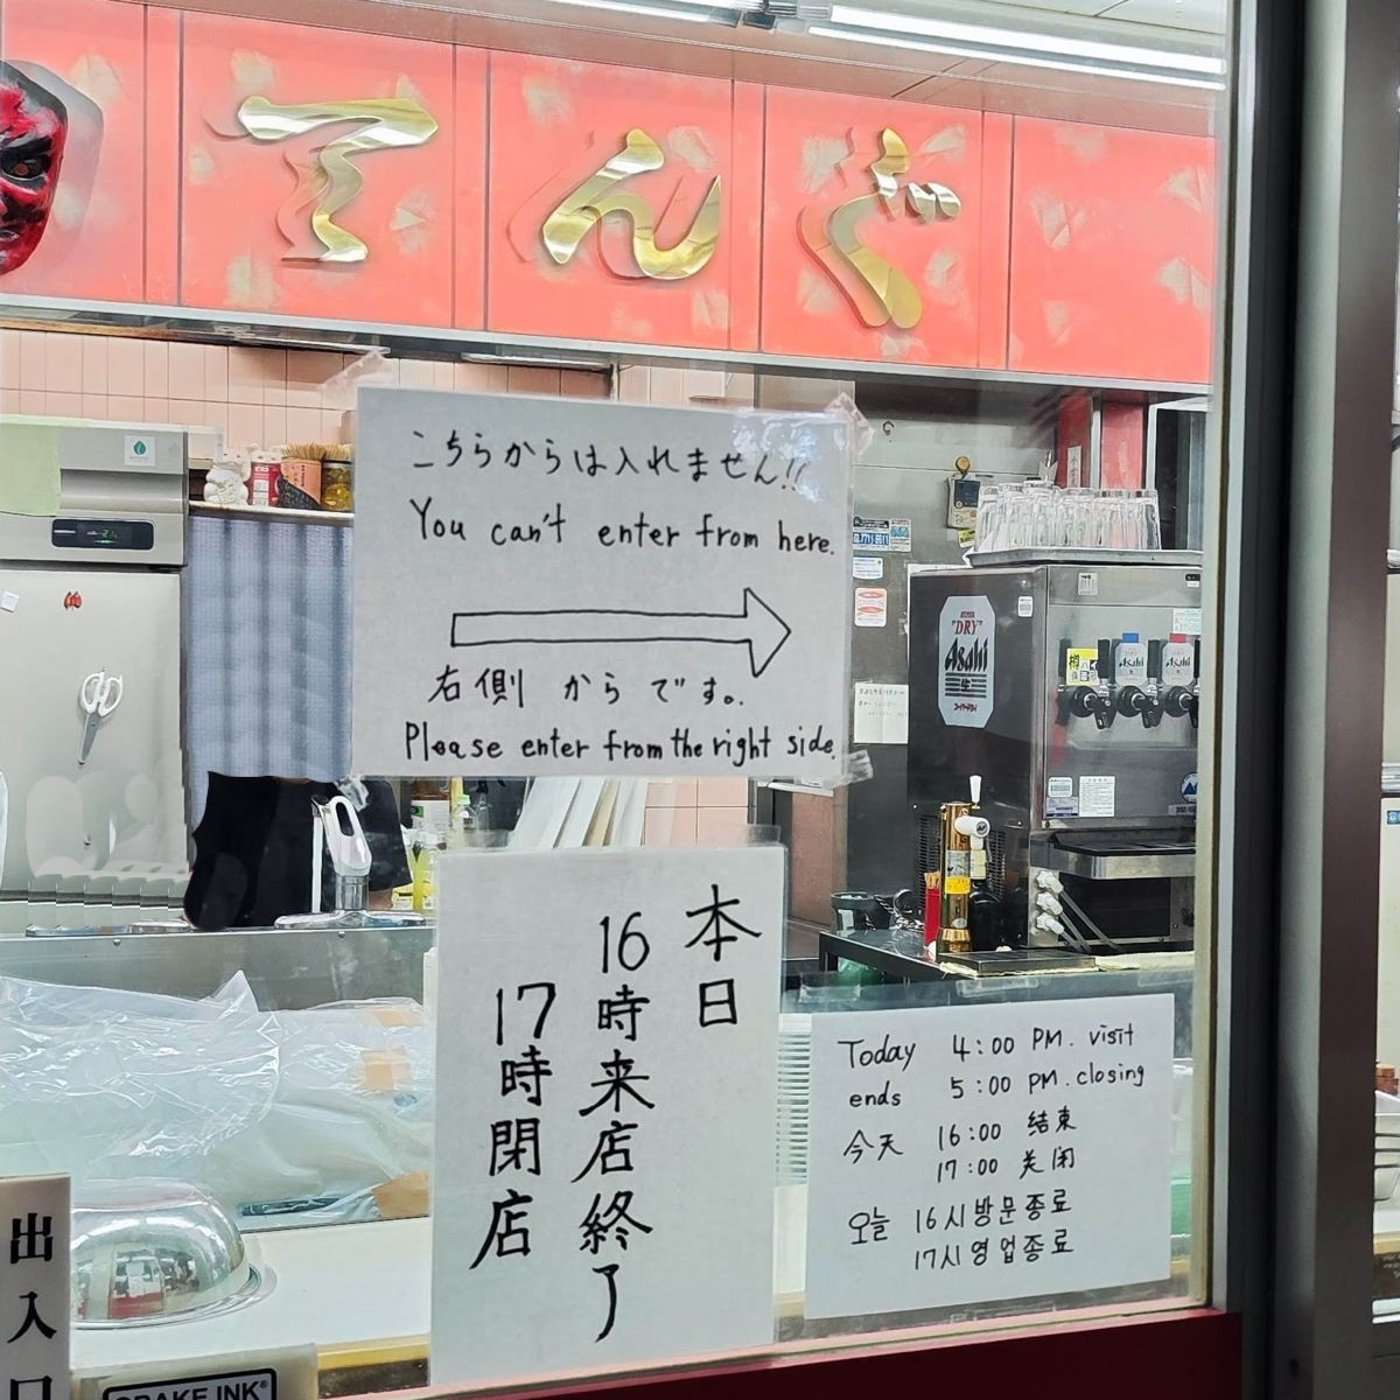 てんぐ
こちらからは入れません!!
You can't enter from here.
右側からです。
Please enter from the right side.
本日
16時来店終了
17時閉店
Today 4:00 PM. visit
ends 5:00 PM. closing
今天 16:00 结束
17:00 关闭
오늘 16시 방문 종료
17시 영업 종료
"DRY"
Asahi
生
Asahi
Asahi
出入口
BRAKE INK®